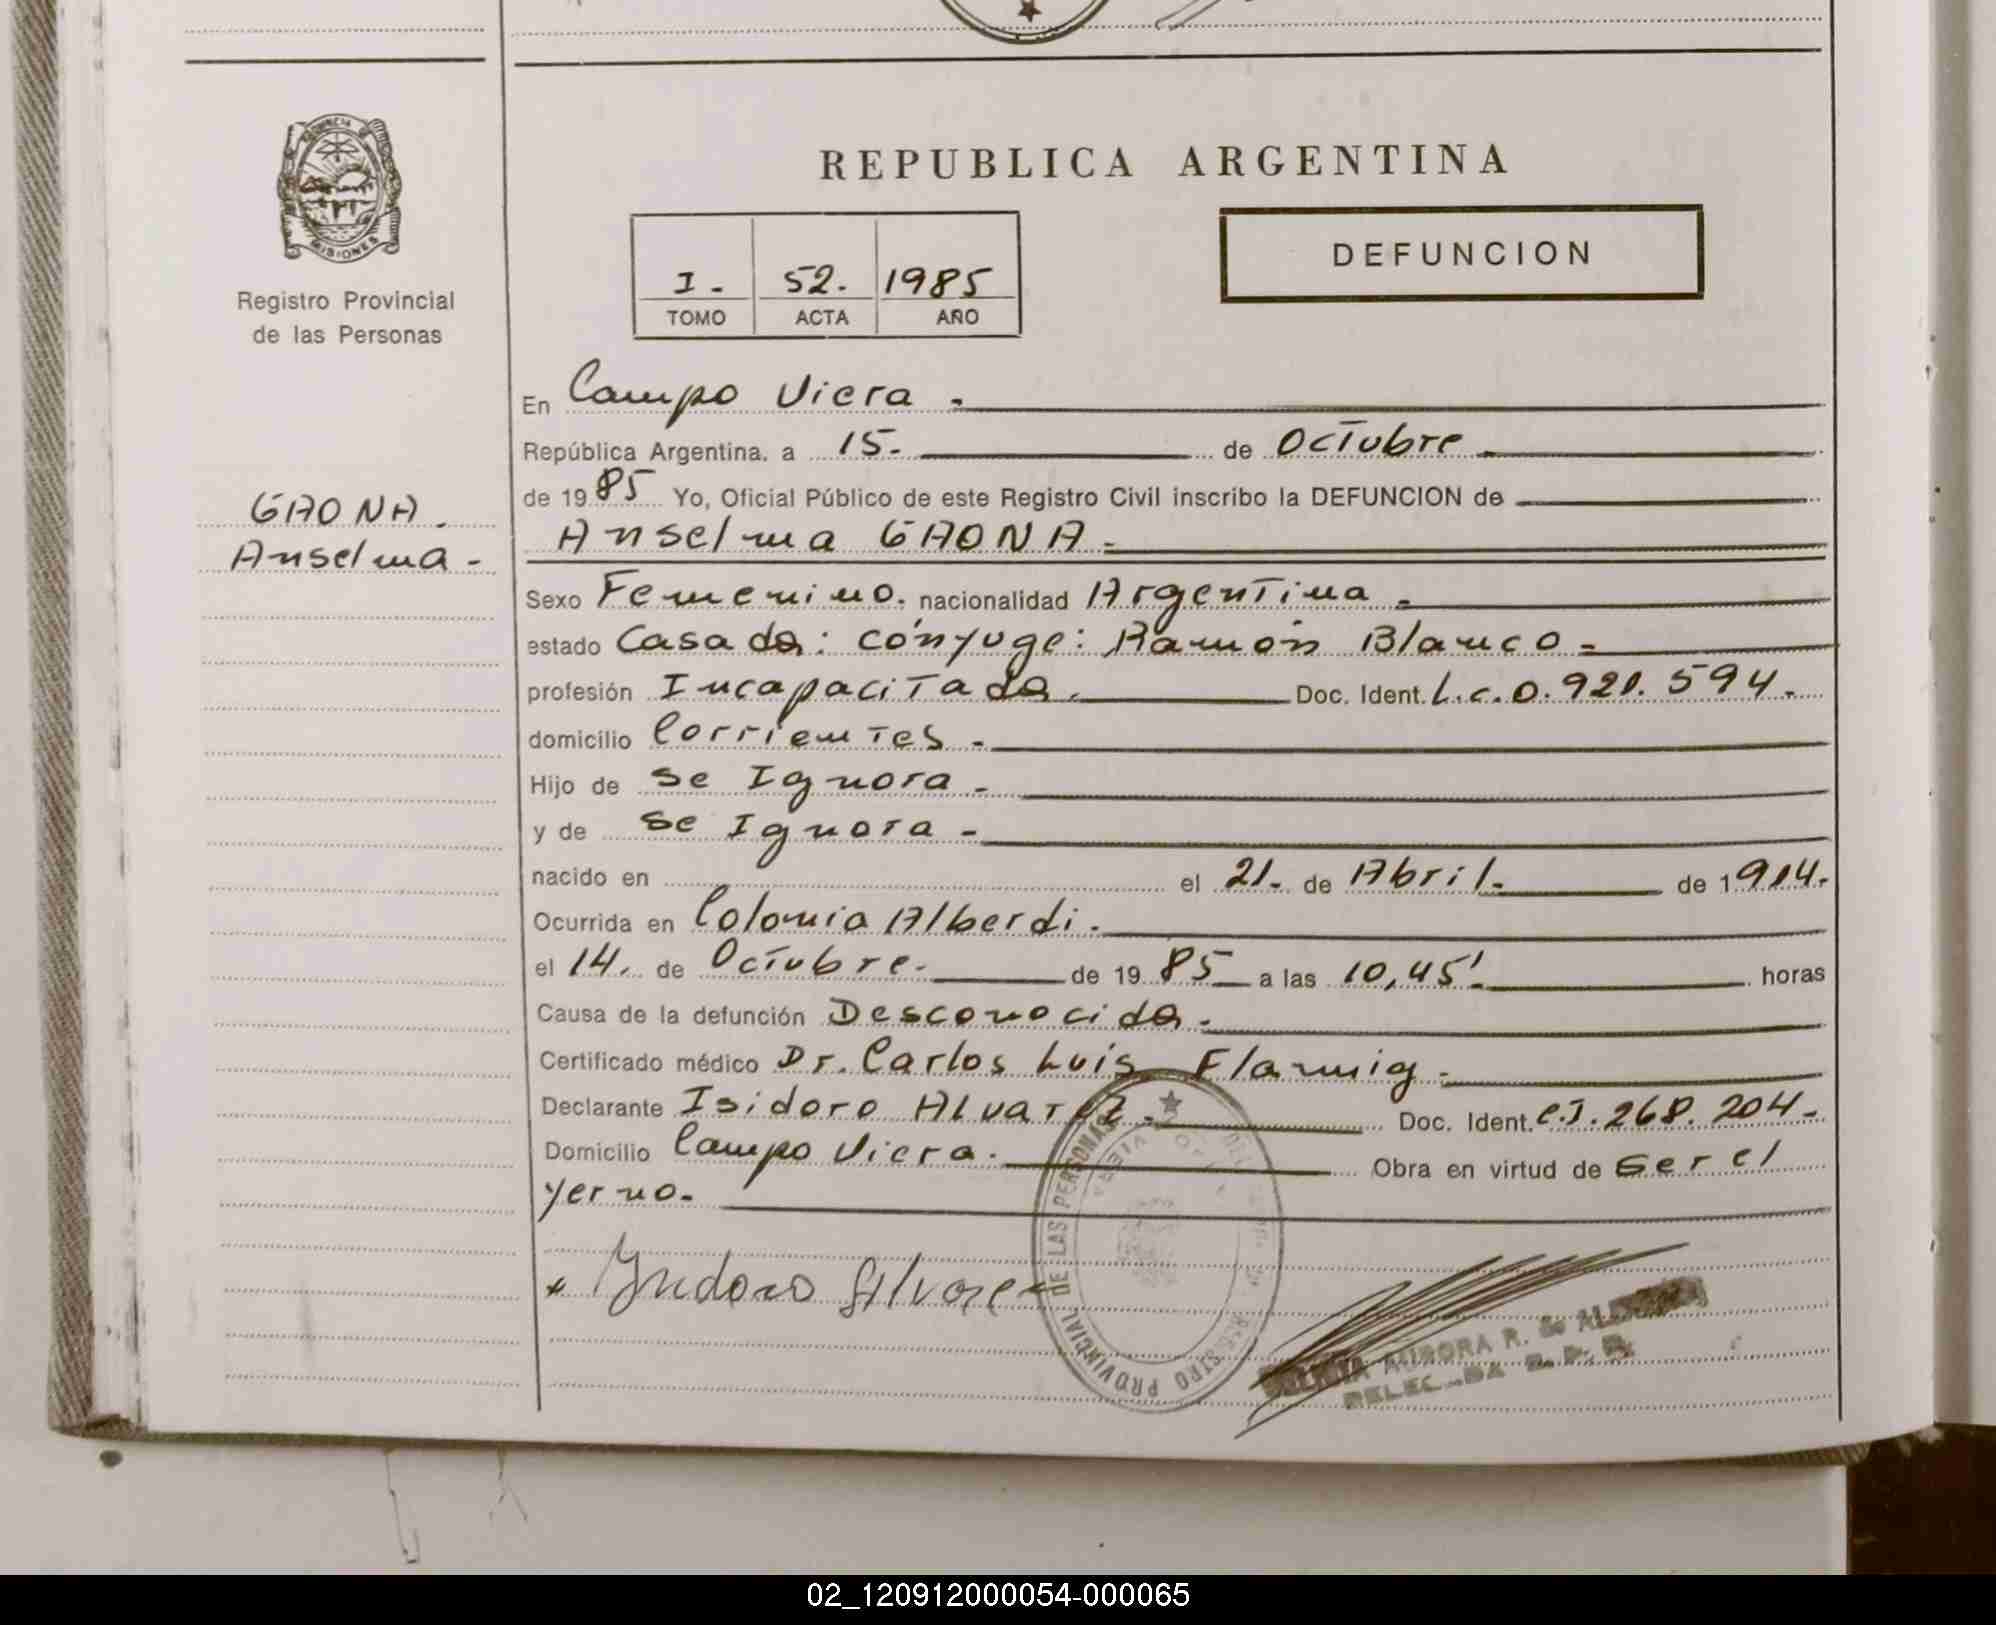 PROVINCIA DE
MISIONES
Registro Provincial
de las Personas
GAONA.
Anselma -
REPUBLICA ARGENTINA
I - 52. 1985
TOMO ACTA AÑO
DEFUNCION
En Campo Viera -
República Argentina, a 15. de Octubre
de 1985 Yo, Oficial Público de este Registro Civil inscribo la DEFUNCION de
Anselma GAONA -
Sexo Femenino. nacionalidad Argentina -
estado Casada: cónyuge: Ramón Blanco -
profesión Incapacitada. Doc. Ident. L.C. 0.921.594.
domicilio Corrientes -
Hijo de Se Ignora -
y de Se Ignora -
nacido en el 21. de Abril. de 1914.
Ocurrida en Colonia Alberdi.
el 14. de Octubre. de 1985 a las 10,45' horas
Causa de la defunción Desconocida.
Certificado médico Dr. Carlos Luis Flamig.
Declarante Isidoro Alvarez. Doc. Ident. C.I. 268.204-
Domicilio Campo Viera. Obra en virtud de Ser el
yerno.
REGISTRO PROVINCIAL DE LAS PERSONAS
AURORA R. de
DELEGADA R. P. P.
02_120912000054-000065